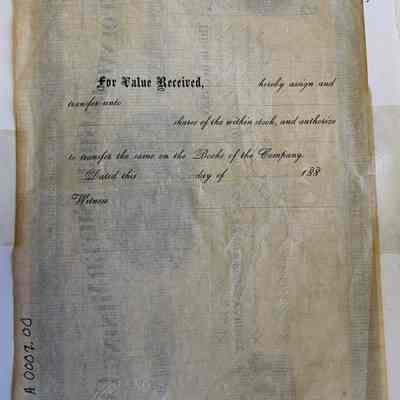 For Value Received, hereby assign and
transfer unto
shares of the within stock, and authorize
to transfer the same on the Books of the Company.
Dated this day of 188
Witness
A 0007.00